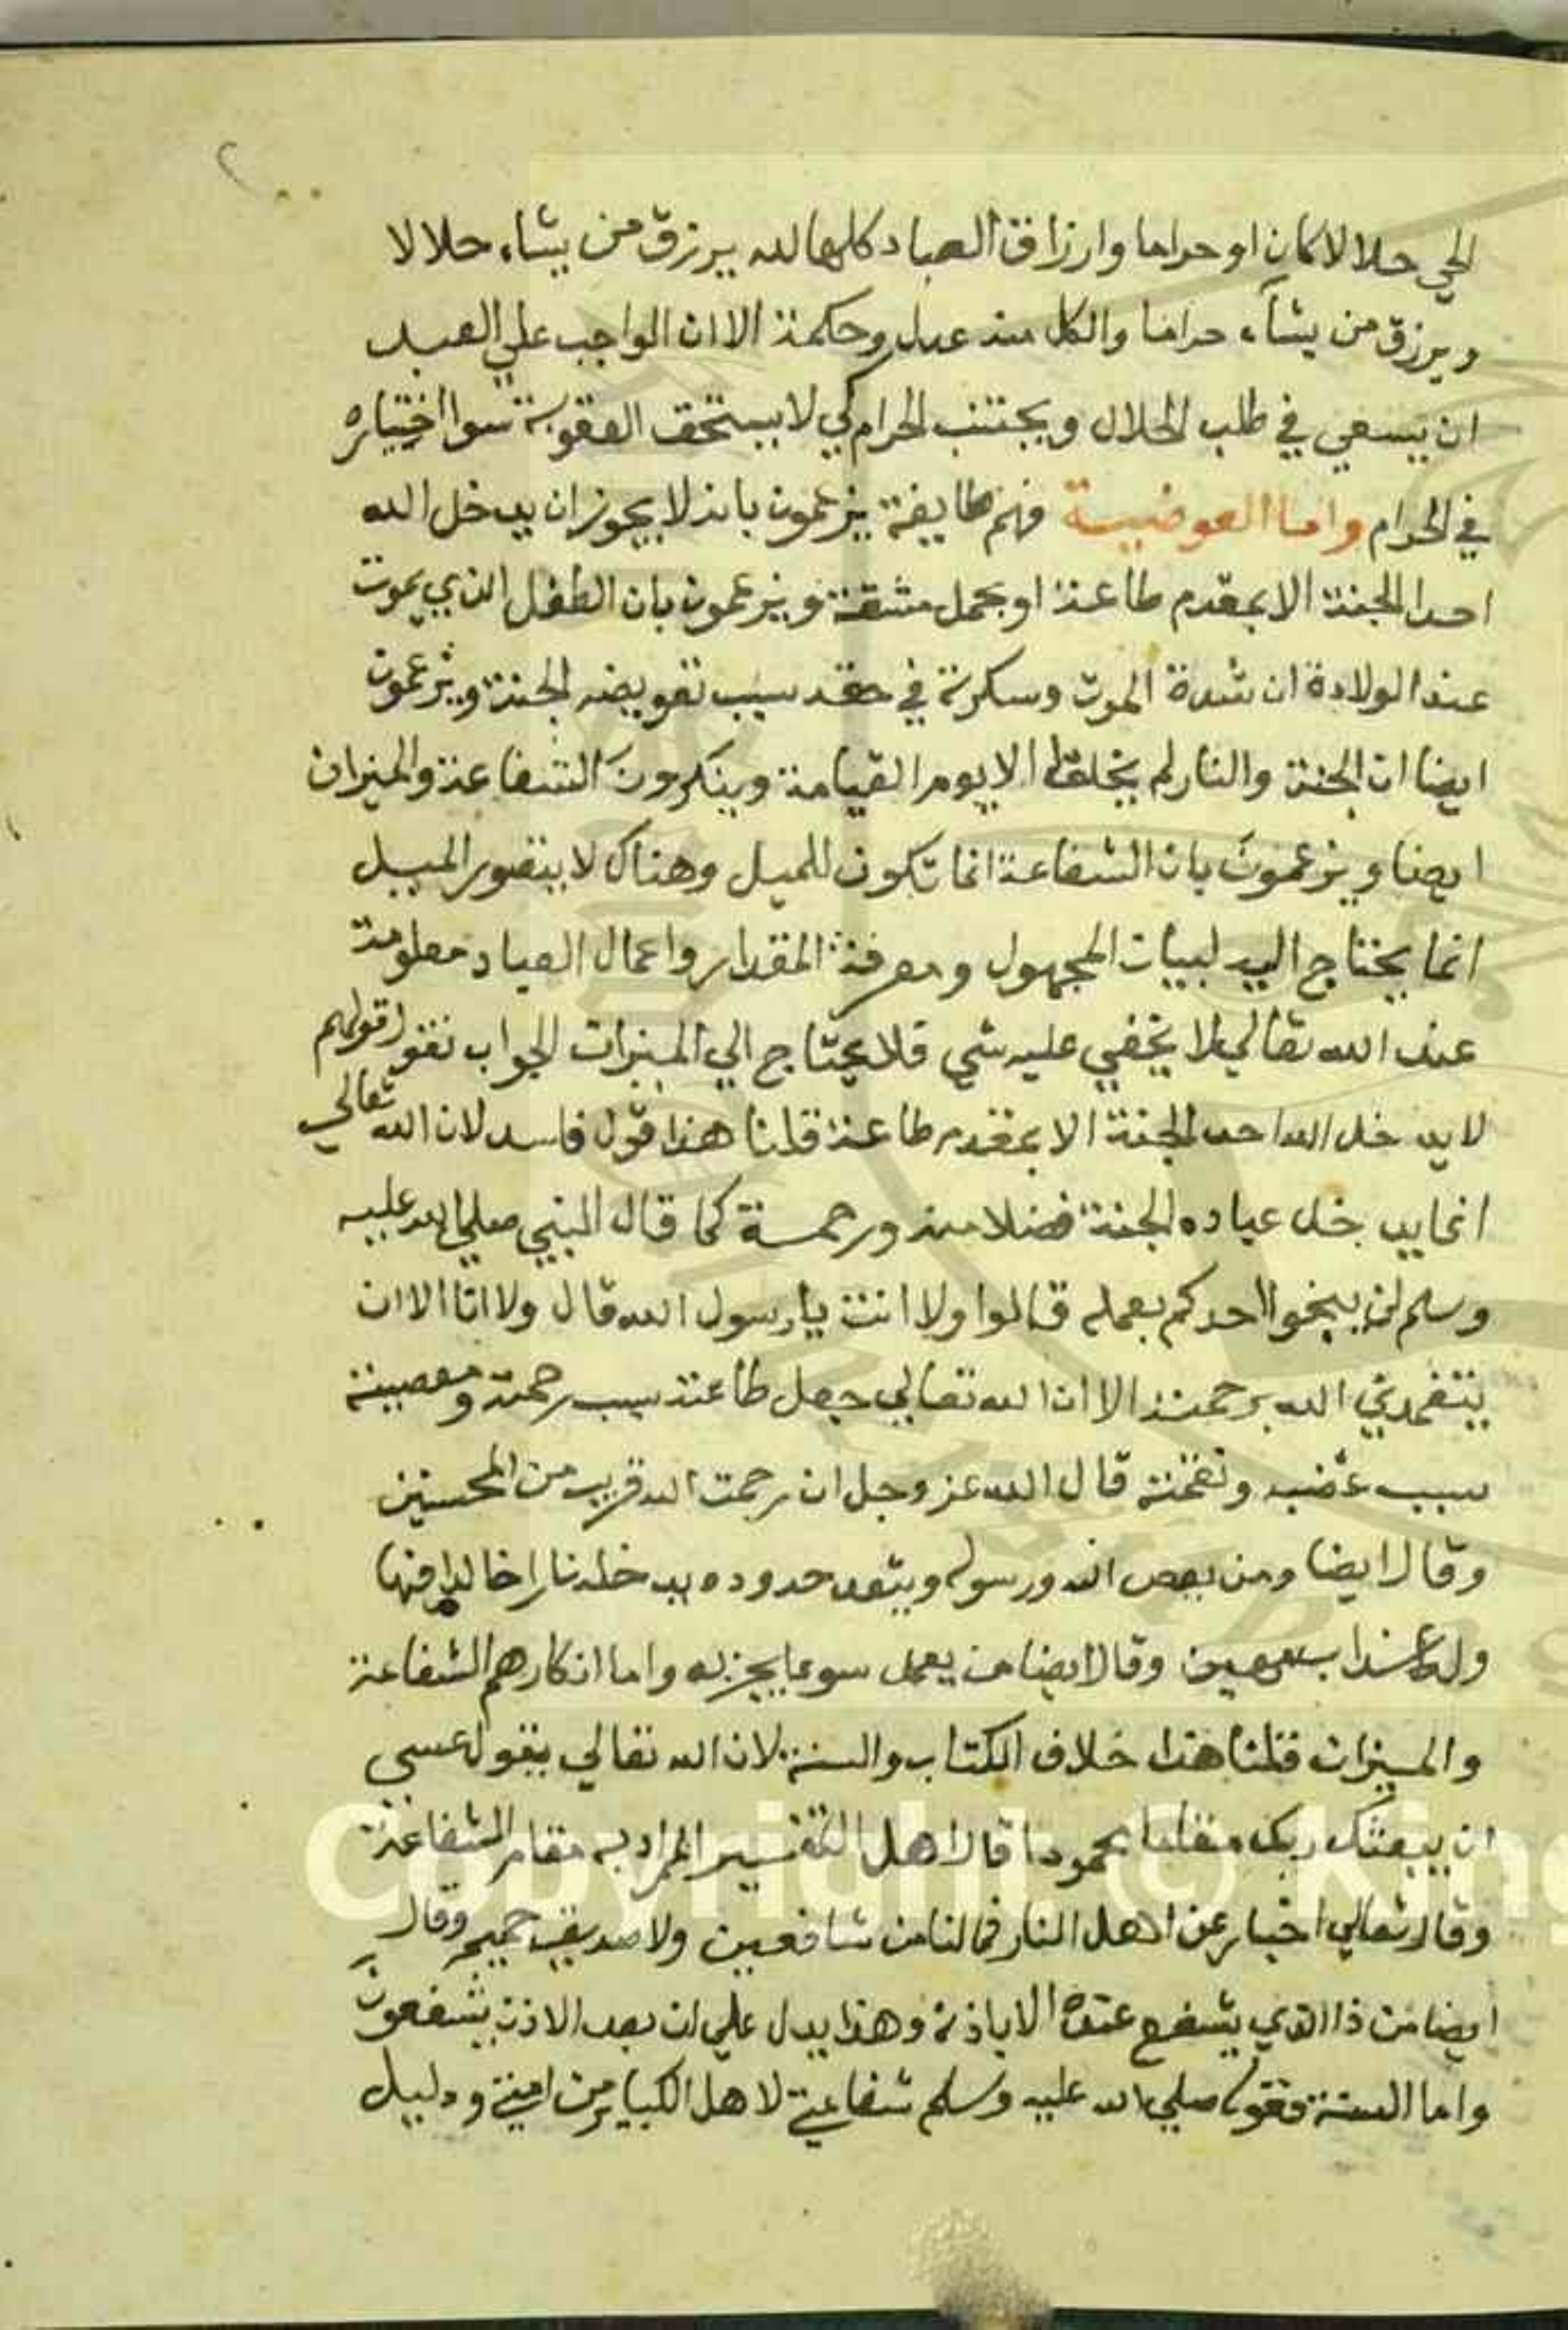 الحي حلالا كان او حراما وارزاق العباد كلها لله يرزق من يشاء حلالا
ويرزق من يشآء حراما والكل منه عدل وحكمة الا ان الواجب علي العبد
ان يسعي في طلب الحلال ويجتنب الحرام كي لا يستحق العقوبة سوا اختياره
في الحرام واما العوضية فهم طايفة يزعمون بانه لا يجوز ان يدخل الله
احدا الجنة الا بمقدم طاعة او بحمل مشقة ويزعمون بان الطفل الذي يموت
عند الولادة ان شدة الموت وسكرته في حقه سبب تعويضه الجنة ويزعمون
ايضا ان الجنة والنار لم يخلقا الا يوم القيامة وينكرون الشفاعة والميزان
ايضا ويزعمون بان الشفاعة انما تكون للميل وهناك لا يتصور الميل
انما يحتاج اليه لبيان المجهول ومعرفة المقدار واعمال العباد معلومة
عند الله تعالي لا يخفي عليه شي فلا يحتاج الي الميزان الجواب نقول قولهم
لا يدخل الله احد الجنة الا بمقدم طاعة قلنا هذا قول فاسد لان الله تعالي
انما يدخل عباده الجنة فضلا منه ورحمة كما قال النبي صلي الله عليه
وسلم لن ينجوا احدكم بعمله قالوا ولا انت يا رسول الله قال ولا انا الا ان
يتغمدني الله برحمته الا ان الله تعالي جعل طاعته سبب رحمته ومعصيته
سبب غضبه ونقمته قال الله عز وجل ان رحمت الله قريب من المحسنين
وقال ايضا ومن يعص الله ورسوله ويتعد حدوده يدخله نارا خالدا فيها
وله عذاب مهين وقال ايضا من يعمل سوءا يجز به واما انكارهم الشفاعة
والميزان قلنا هذا خلاف الكتاب والسنة لان الله تعالي يقول عسي
ان يبعثك ربك مقاما محمودا قال اهل التفسير المراد به مقام الشفاعة
وقال تعالي اخبار عن اهل النار فما لنا من شافعين ولا صديق حميم وقال
ايضا من ذا الذي يشفع عنده الا باذنه وهذا يدل علي ان بعد الاذن يشفعون
واما السنة فقوله صلي الله عليه وسلم شفاعتي لاهل الكباير من امتي ودليل
Copyright © King